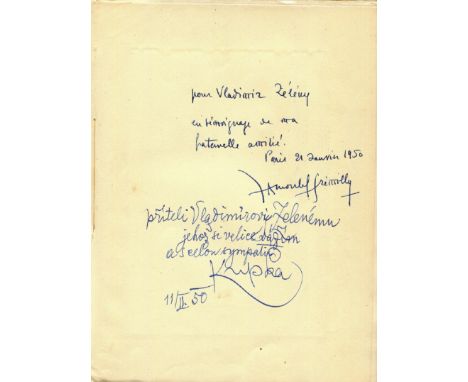 pour Vladimir Zélény
en témoignage de ma
fraternelle amitié.
Paris 21 Janvier 1950
příteli Vladimírovi Zelenému
jehož si velice vážím
a s celou sympatií
Kupka
11/II. 50